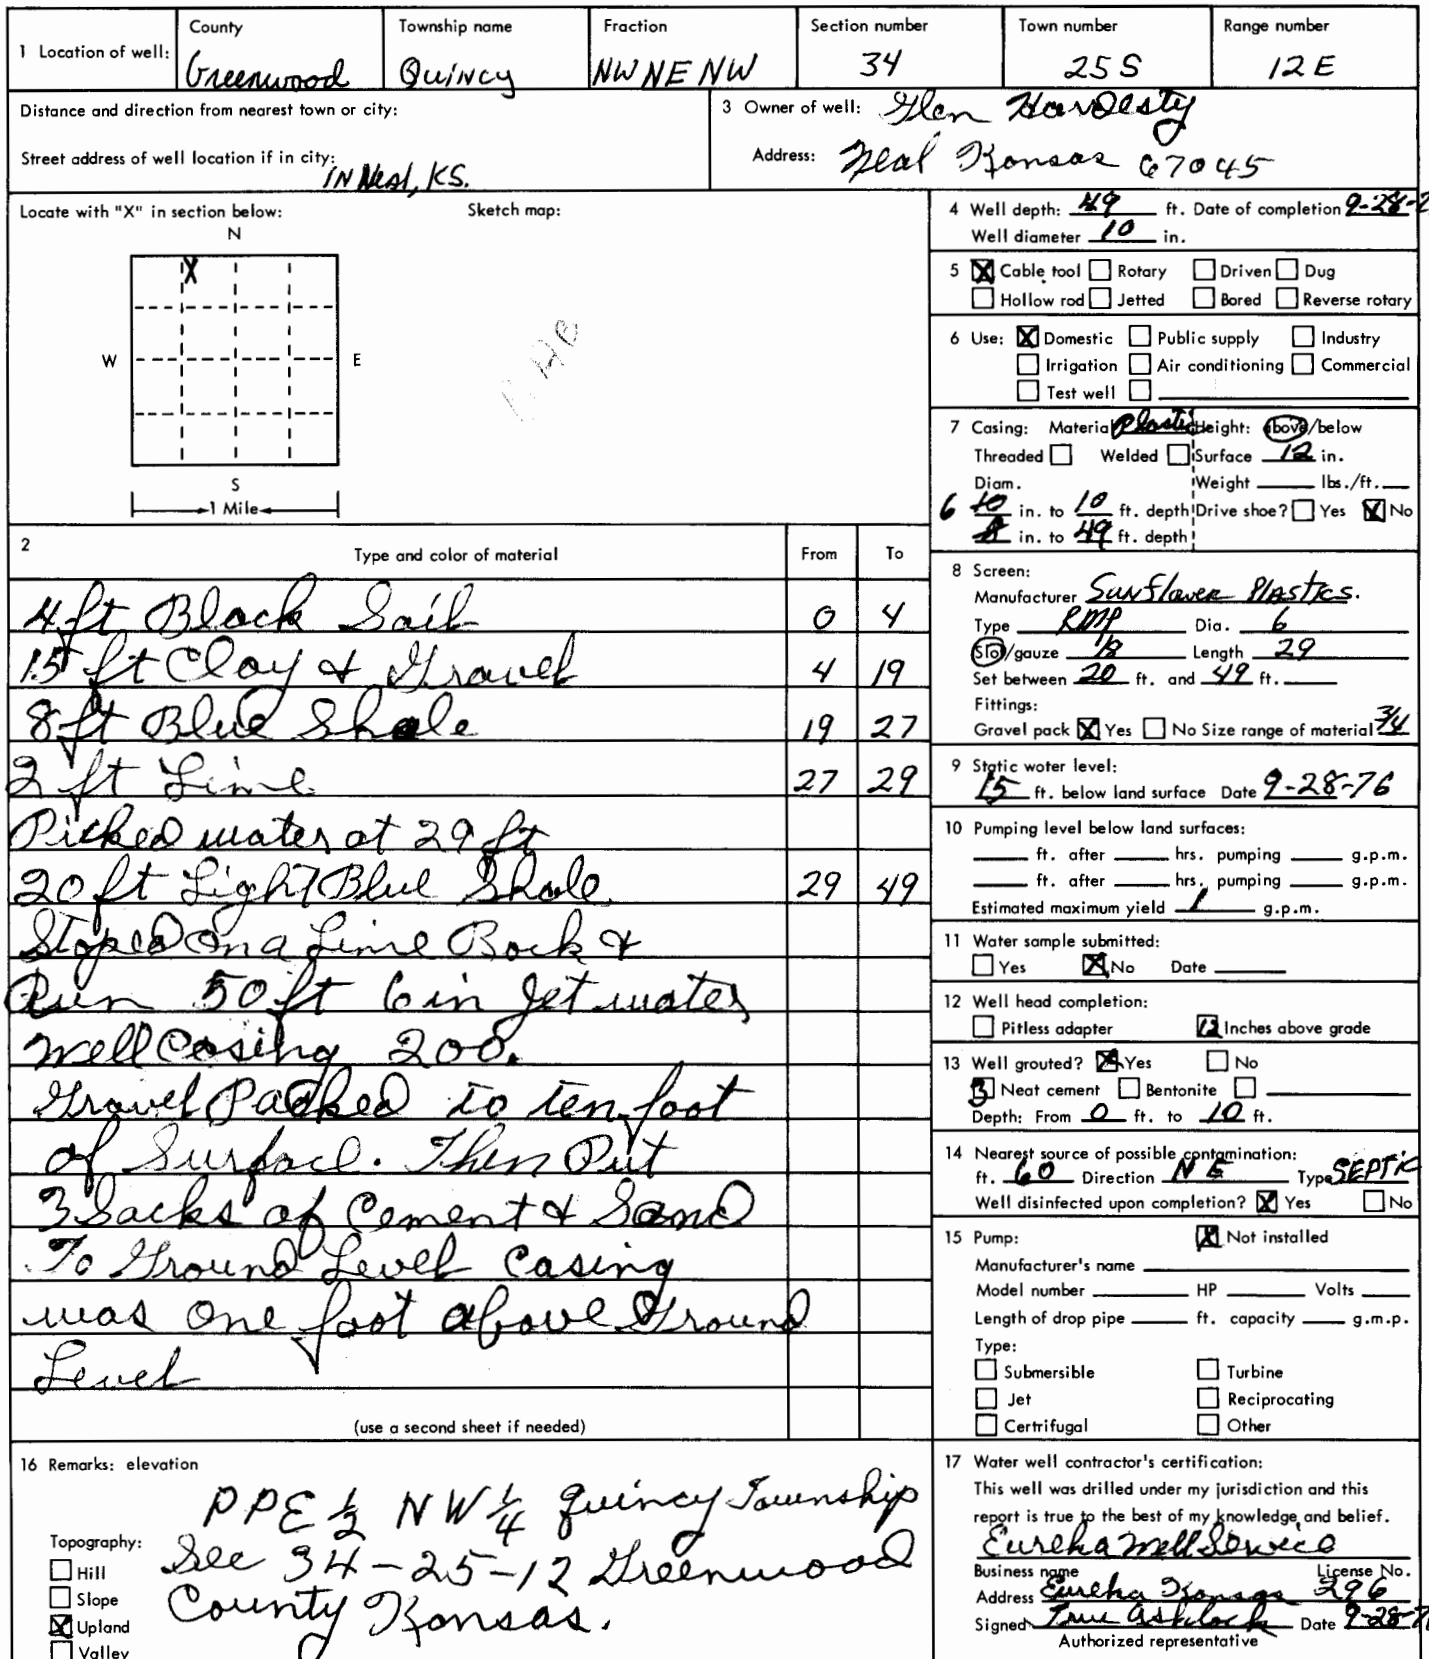 1 Location of well:
County Township name Fraction Section number Town number Range number
Greenwood Quincy NW NE NW 34 25 S 12 E
Distance and direction from nearest town or city:
Street address of well location if in city: IN Neal, KS.
3 Owner of well: Glen Hardesty
Address: Neal Kansas 67045
Locate with "X" in section below: Sketch map:
N
X
W E
S
1 Mile
2 Type and color of material From To
4 ft Black Soil 0 4
15 ft Clay & Gravel 4 19
8 ft Blue Shale 19 27
2 ft Lime 27 29
Picked water at 29 ft
20 ft Light Blue Shale 29 49
Stoped on a Lime Rock &
Run 50 ft 6 in Jet water
well casing 200.
Gravel Packed to ten foot
of Surface. Then Put
3 Sacks of Cement & Sand
To Ground Level Casing
was one foot above Ground
Level
(use a second sheet if needed)
4 Well depth: 49 ft. Date of completion 9-28-
Well diameter 10 in.
5 X Cable tool Rotary Driven Dug
Hollow rod Jetted Bored Reverse rotary
6 Use: X Domestic Public supply Industry
Irrigation Air conditioning Commercial
Test well
7 Casing: Material Plastic Height: above/below
Threaded Welded Surface 12 in.
Diam. Weight lbs./ft.
6 10 in. to 10 ft. depth Drive shoe? Yes X No
in. to 49 ft. depth
8 Screen:
Manufacturer Sunflower Plastics.
Type RMP Dia. 6
Slo/gauze 18 Length 29
Set between 20 ft. and 49 ft.
Fittings:
Gravel pack X Yes No Size range of material 3/4
9 Static water level:
15 ft. below land surface Date 9-28-76
10 Pumping level below land surfaces:
ft. after hrs. pumping g.p.m.
ft. after hrs. pumping g.p.m.
Estimated maximum yield 1 g.p.m.
11 Water sample submitted:
Yes X No Date
12 Well head completion:
Pitless adapter 12 Inches above grade
13 Well grouted? X Yes No
3 Neat cement Bentonite
Depth: From 0 ft. to 10 ft.
14 Nearest source of possible contamination:
ft. 60 Direction NE Type SEPTIC
Well disinfected upon completion? X Yes No
15 Pump: X Not installed
Manufacturer's name
Model number HP Volts
Length of drop pipe ft. capacity g.m.p.
Type:
Submersible Turbine
Jet Reciprocating
Certrifugal Other
16 Remarks: elevation
PPE 1/2 NW 1/4 Quincy Township
Sec 34-25-12 Greenwood
County Kansas.
Topography:
Hill
Slope
X Upland
Valley
17 Water well contractor's certification:
This well was drilled under my jurisdiction and this
report is true to the best of my knowledge and belief.
Eureka Well Service
Business name License No.
Address Eureka Kansas 296
Signed True Ashlock Date 9-28-7
Authorized representative